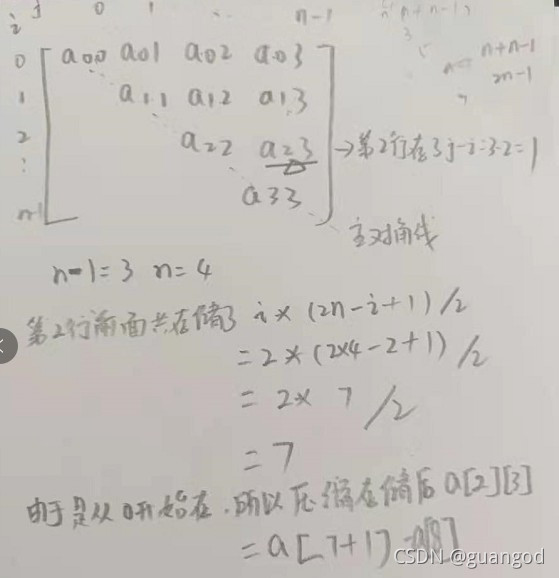 j 0 1 .. n-1
i
0 a00 a01 a02 a03
1 a11 a12 a13
2 a22 a23 →第2行存3 j-i=3-2=1
⋮ a33
n-1 主对角线
n+n-1
2n-1
n-1=3 n=4
第2行前面共存储了 i×(2n-i+1)/2
=2×(2×4-2+1)/2
=2×7/2
=7
由于是从0开始存,所以压缩存储后a[2][3]
=a[7+1]=a[8]
CSDN @guangod